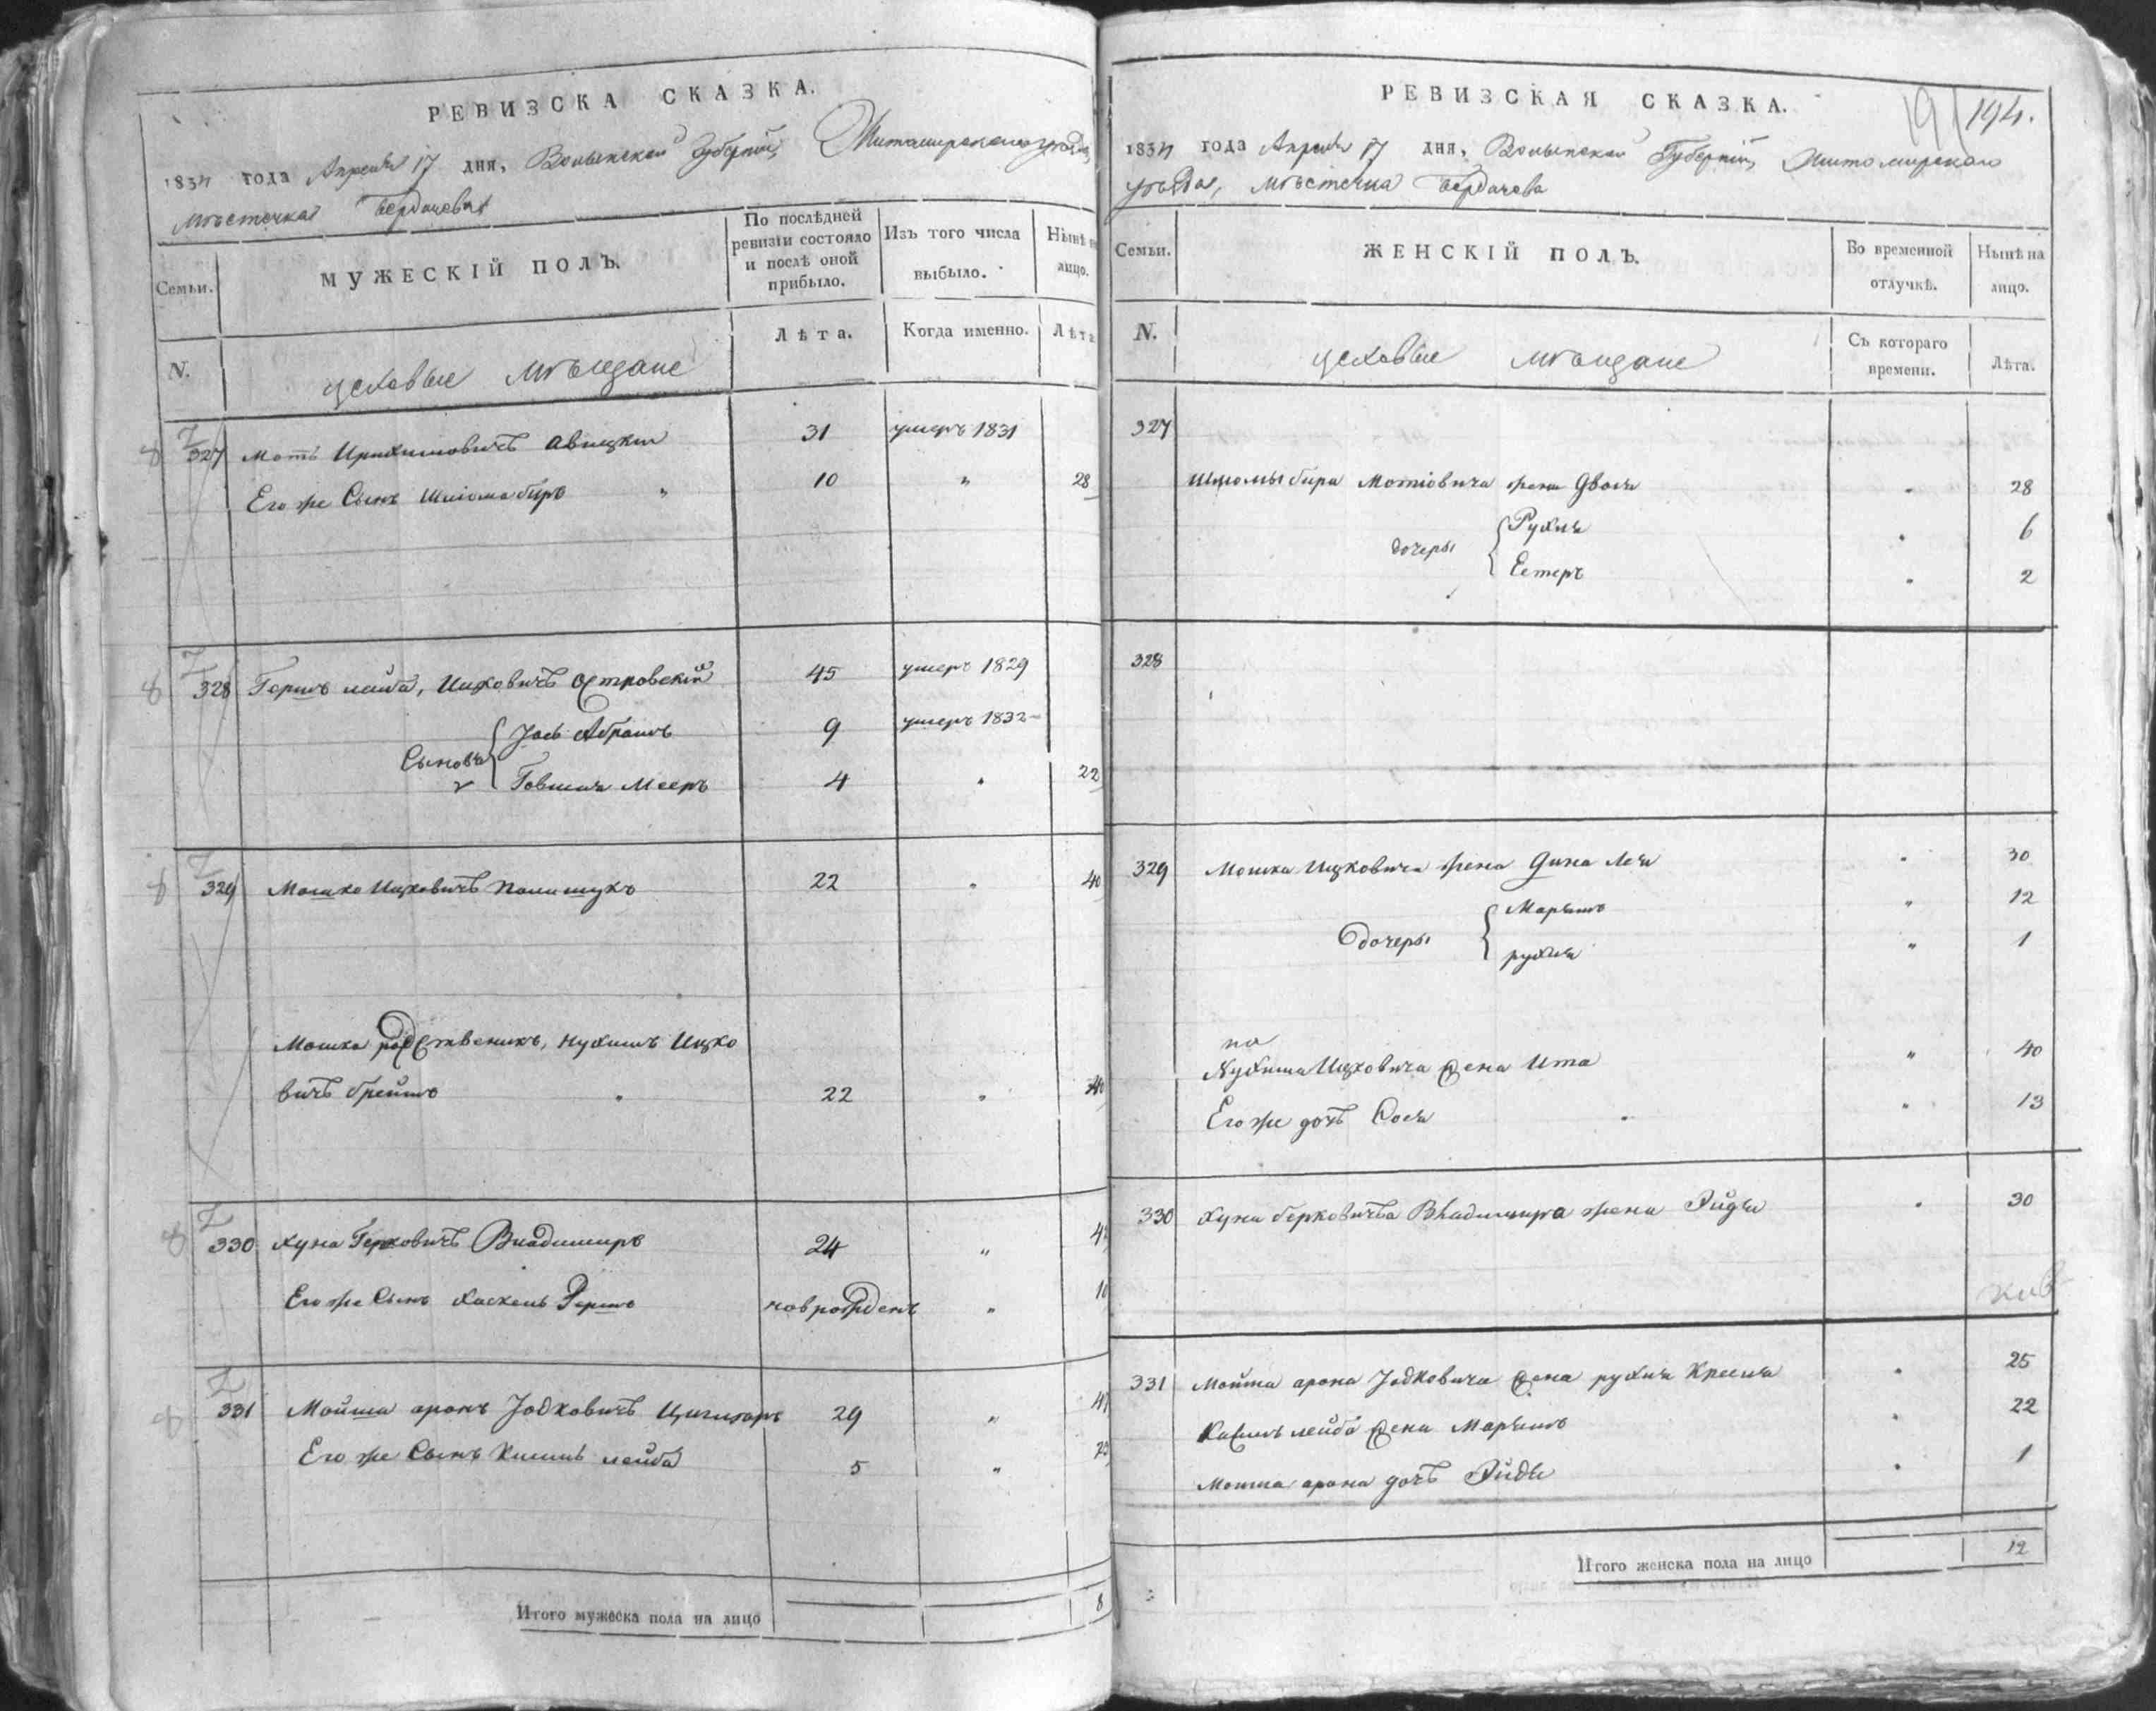 РЕВИЗСКА СКАЗКА.
1834 года Апреля 17 дня, Волынской Губернии, Житомирского уезда,
мѣстечка Бердичева
Семьи.
МУЖЕСКІЙ ПОЛЪ.
По послѣдней ревизіи состояло и послѣ оной прибыло.
Изъ того числа выбыло.
Нынѣ на лицо.
N.
цеховые мѣщане
Лѣта.
Когда именно.
Лѣта
327 Моть Авицкий 31 умеръ 1831
Его же Сынъ Шліома беръ " 10 " 28
328 Гершъ лейба, Ицковичъ Островскій 45 умеръ 1829
Сыновья
Іось Абрамъ 9 умеръ 1832
Говшия Мееръ 4 " 22
329 Мошко Ицковичъ Полищукъ 22 " 40
Мошка родственикъ, Нухимъ Ицко
вичъ брейтъ " 22 " 40
330 Хуна Берковичъ Владимиръ 24 "
Его же Сынъ Хаскель Гершъ новорожденъ " 10
331 Мойша аронъ Іодковичъ 29 "
Его же Сынъ Кисиль лейба 5 "
Итого мужеска пола на лицо 8
РЕВИЗСКАЯ СКАЗКА.
194.
1834 года Апреля 17 дня, Волынской Губерніи, Житомирского
уѣзда, мѣстечка Бердичева
Семьи.
ЖЕНСКІЙ ПОЛЪ.
Во временной отлучкѣ.
Нынѣ на лицо.
N.
цеховые мѣщане
Съ котораго времени.
Лѣта.
327
Шліомы бера Мотіовича жена Двося " 28
дочеры
Рухля " 6
Естеръ " 2
328
329 Мошка Ицковича жена Дина Лея " 30
дочеры
Марьямъ " 12
рухля " 1
Нухима Ицковича жена Ита " 40
Его же дочь Сося " 13
330 Хуны берковича Владимира жена Эйдя " 30
331 Мойша арона Іодковича жена рухля Крейня " 25
Кисиль лейба жена Марьямъ " 22
Мойша арона дочь Эйдя " 1
Итого женска пола на лицо 12